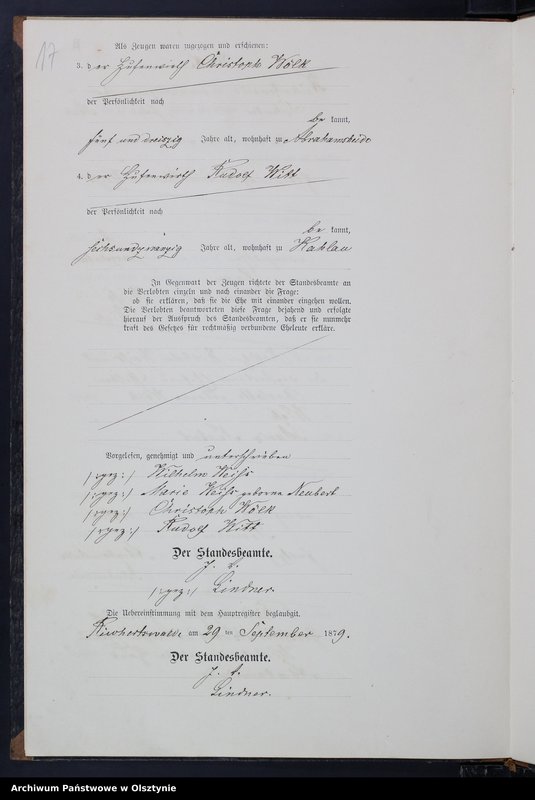 17
Als Zeugen waren zugezogen und erschienen:
3. der Hufenwirth Christoph Wölk
der Persönlichkeit nach
be kannt,
fünf und dreißig Jahre alt, wohnhaft zu Abrahamsheide
4. der Hufenwirth Rudolf Witt
der Persönlichkeit nach
be kannt,
sechsundzwanzig Jahre alt, wohnhaft zu Hahlau
In Gegenwart der Zeugen richtete der Standesbeamte an
die Verlobten einzeln und nach einander die Frage:
ob sie erklären, daß sie die Ehe mit einander eingehen wollen.
Die Verlobten beantworteten diese Frage bejahend und erfolgte
hierauf der Ausspruch des Standesbeamten, daß er sie nunmehr
kraft des Gesetzes für rechtmäßig verbundene Eheleute erkläre.
Vorgelesen, genehmigt und unterschrieben
/:gez:/ Wilhelm Weiß
/:gez:/ Marie Weiß geborne Neubert
/:gez:/ Christoph Wölk
/:gez:/ Rudolf Witt
Der Standesbeamte.
J. V.
/:gez:/ Lindner.
Die Uebereinstimmung mit dem Hauptregister beglaubigt.
am 29 ten September 1879.
Der Standesbeamte.
J. V.
Lindner.
Archiwum Państwowe w Olsztynie